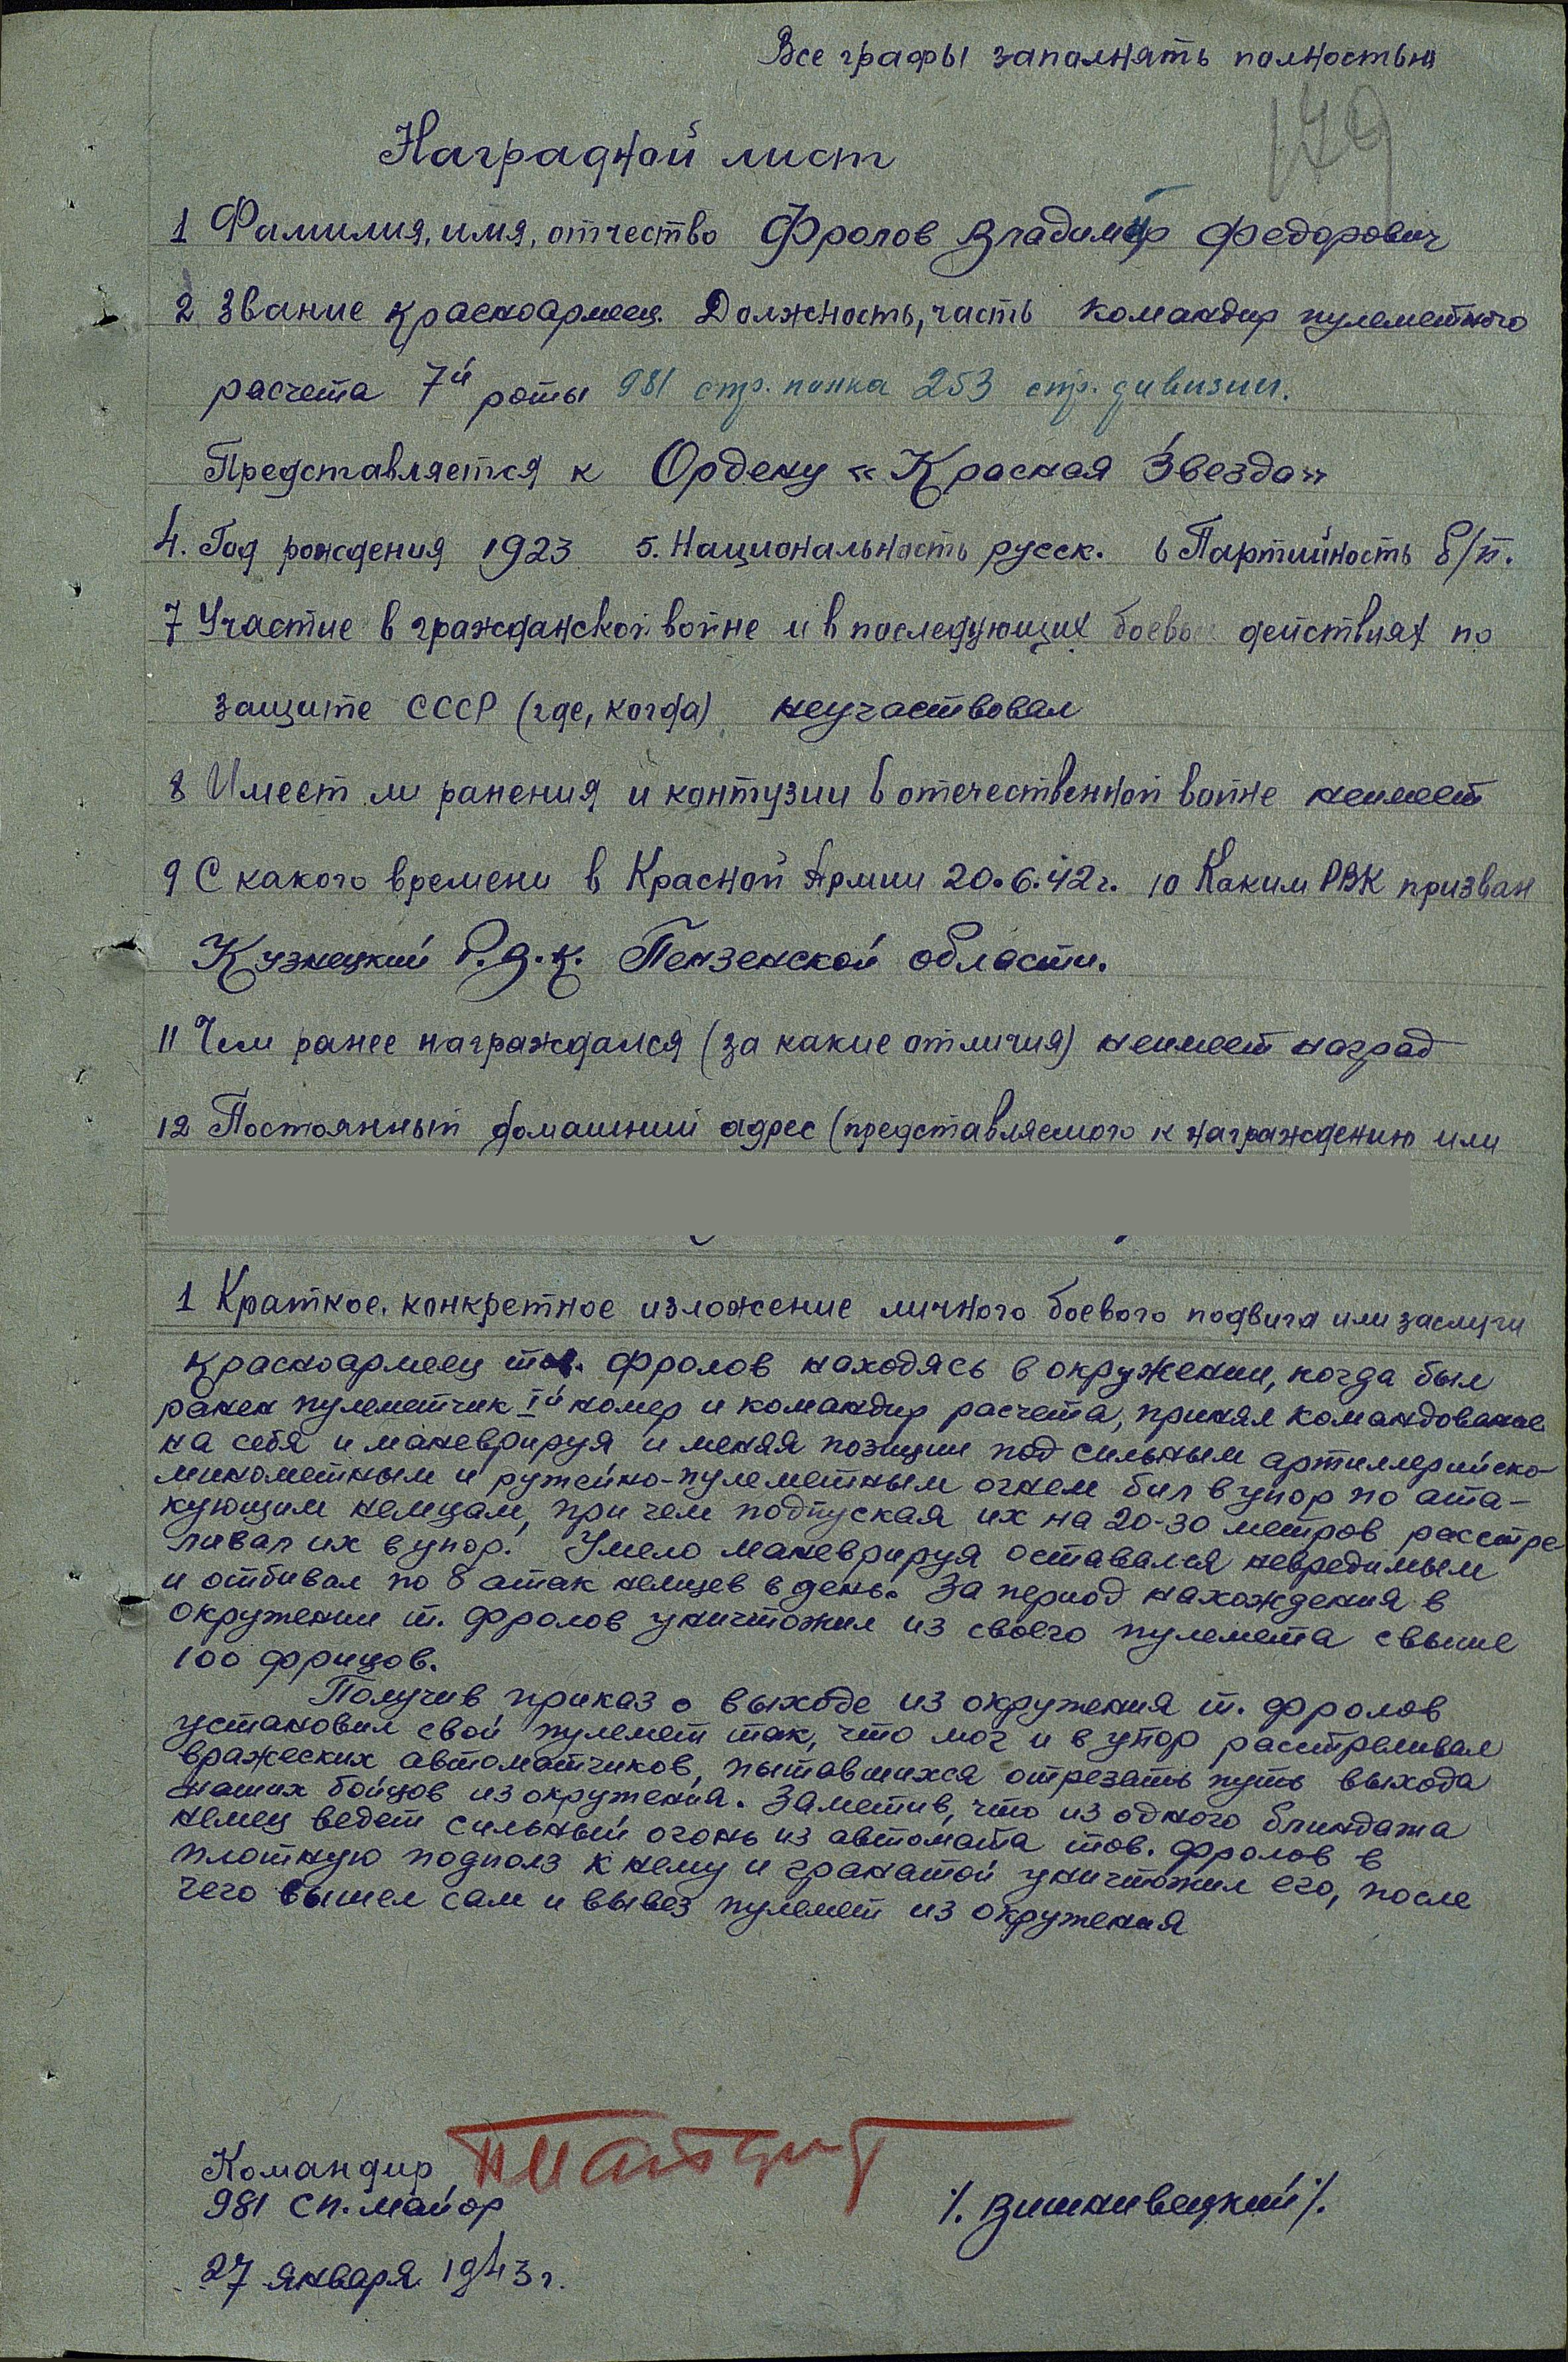 Все графы заполнять полностью
179
Наградной лист
1 Фамилия, имя, отчество Фролов Владимир Федорович
2 Звание красноармеец. Должность, часть командир пулеметного
расчета 7й роты 981 стр. полка 253 стр. дивизии.
Представляется к Ордену «Красная Звезда»
4. Год рождения 1923 5. Национальность русск. 6 Партийность б/п.
7 Участие в гражданской войне и в последующих боевых действиях по
защите СССР (где, когда) неучаствовал
8 Имеет ли ранения и контузии в отечественной войне неимеет
9 С какого времени в Красной Армии 20.6.42 г. 10 Каким РВК призван
Кузнецкий Р.В.К. Пензенской области.
11 Чем ранее награждался (за какие отличия) неимеет наград
12 Постоянный домашний адрес (представляемого к награждению или
1 Краткое, конкретное изложение личного боевого подвига или заслуги
Красноармеец тов. Фролов находясь в окружении, когда был
ранен пулеметчик Iй номер и командир расчета, принял командование
на себя и маневрируя и меняя позиции под сильным артиллерийско-
минометным и ружейно-пулеметным огнем бил в упор по ата-
кующим немцам, при чем подпуская их на 20-30 метров расстре
ливал их в упор. Умело маневрируя оставался невредимым
и отбивал по 8 атак немцев в день. За период нахождения в
окружении т. Фролов уничтожил из своего пулемета свыше
100 фрицов.
Получив приказ о выходе из окружения т. Фролов
установил свой пулемет так, что мог и в упор расстреливал
вражеских автоматчиков, пытавшихся отрезать путь выхода
наших бойцов из окружения. Заметив, что из одного блиндажа
немец ведет сильный огонь из автомата тов. Фролов в
плотную подполз к нему и гранатой уничтожил его, после
чего вышел сам и вывез пулемет из окружения
Командир
981 сп. майор /. Вишнивецкий /.
27 января 1943 г.